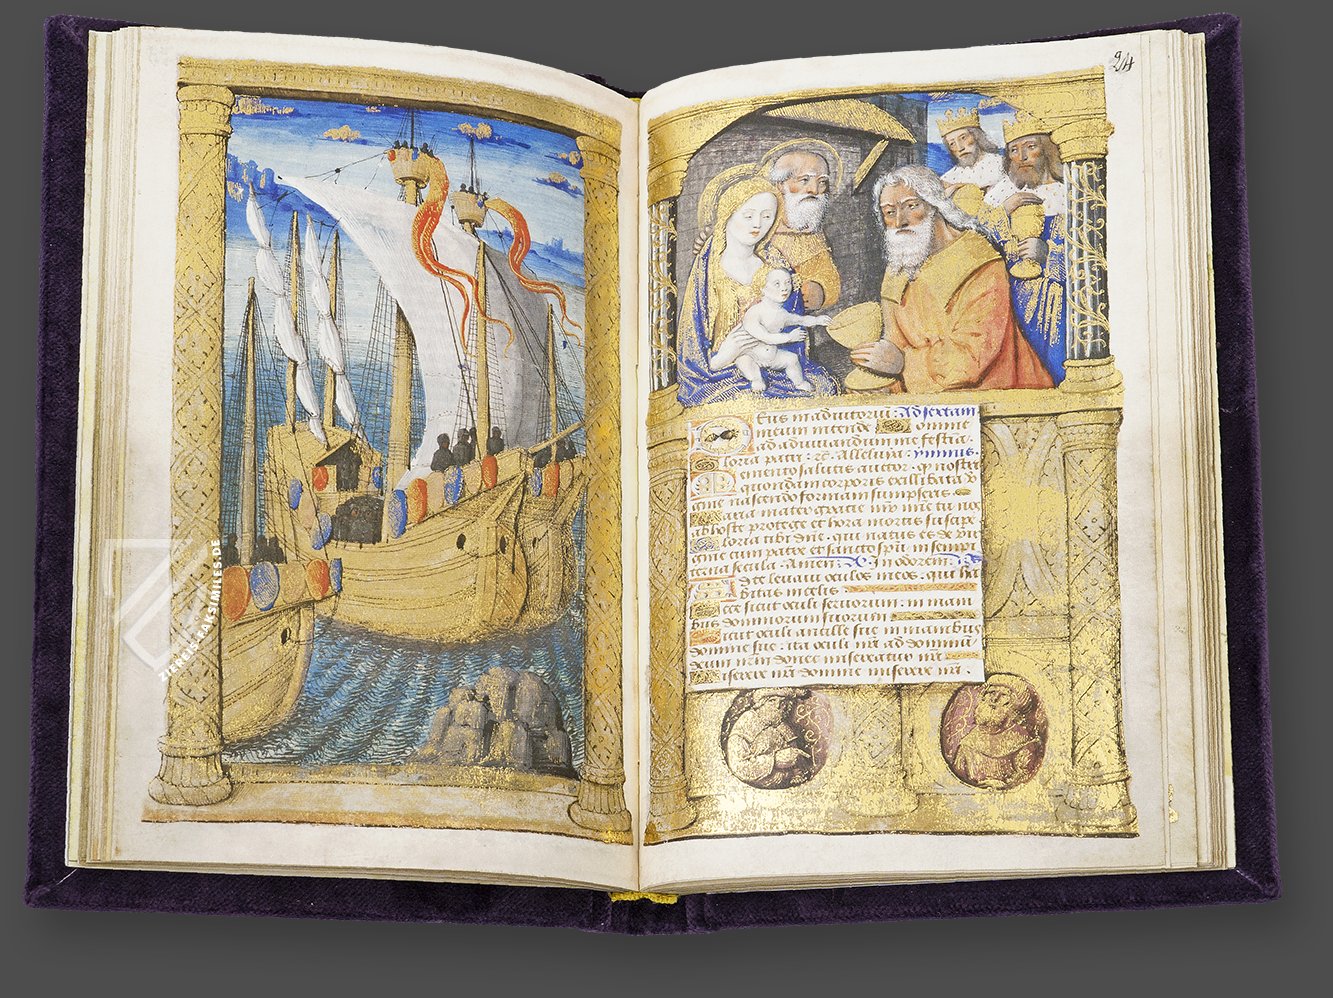 24
Eus in adiutoriũ : Ad sextam
meum intende omine
ad adiuuandum me festia .
loria patri : &c. Alleluya : ymnus .
emento salutis auctor . qͥ nostri
quondam corporis ex illibata ꝟ
gine nascendo formam sumpseris
aria mater gratie mr̃ mĩe tu nos
ab hoste protege et hora mortis suscipe .
loria tibi dñe . qui natus es de vir
gine cum patre et sancto spũ in sempi
terna secula . Amen : In odorem :
d te leuaui oculos meos . qui ha
bitas in celis :
cce sicut oculi seruorum : in mani
bus dominorum suorum
icut oculi ancille sue in manibus
domine sue : ita oculi nr̃i ad dominũ
deum nrm donec misereatur nr̃i
iserere nr̃i domine miserere nr̃i .
ZIEREIS FAKSIMILES.DE